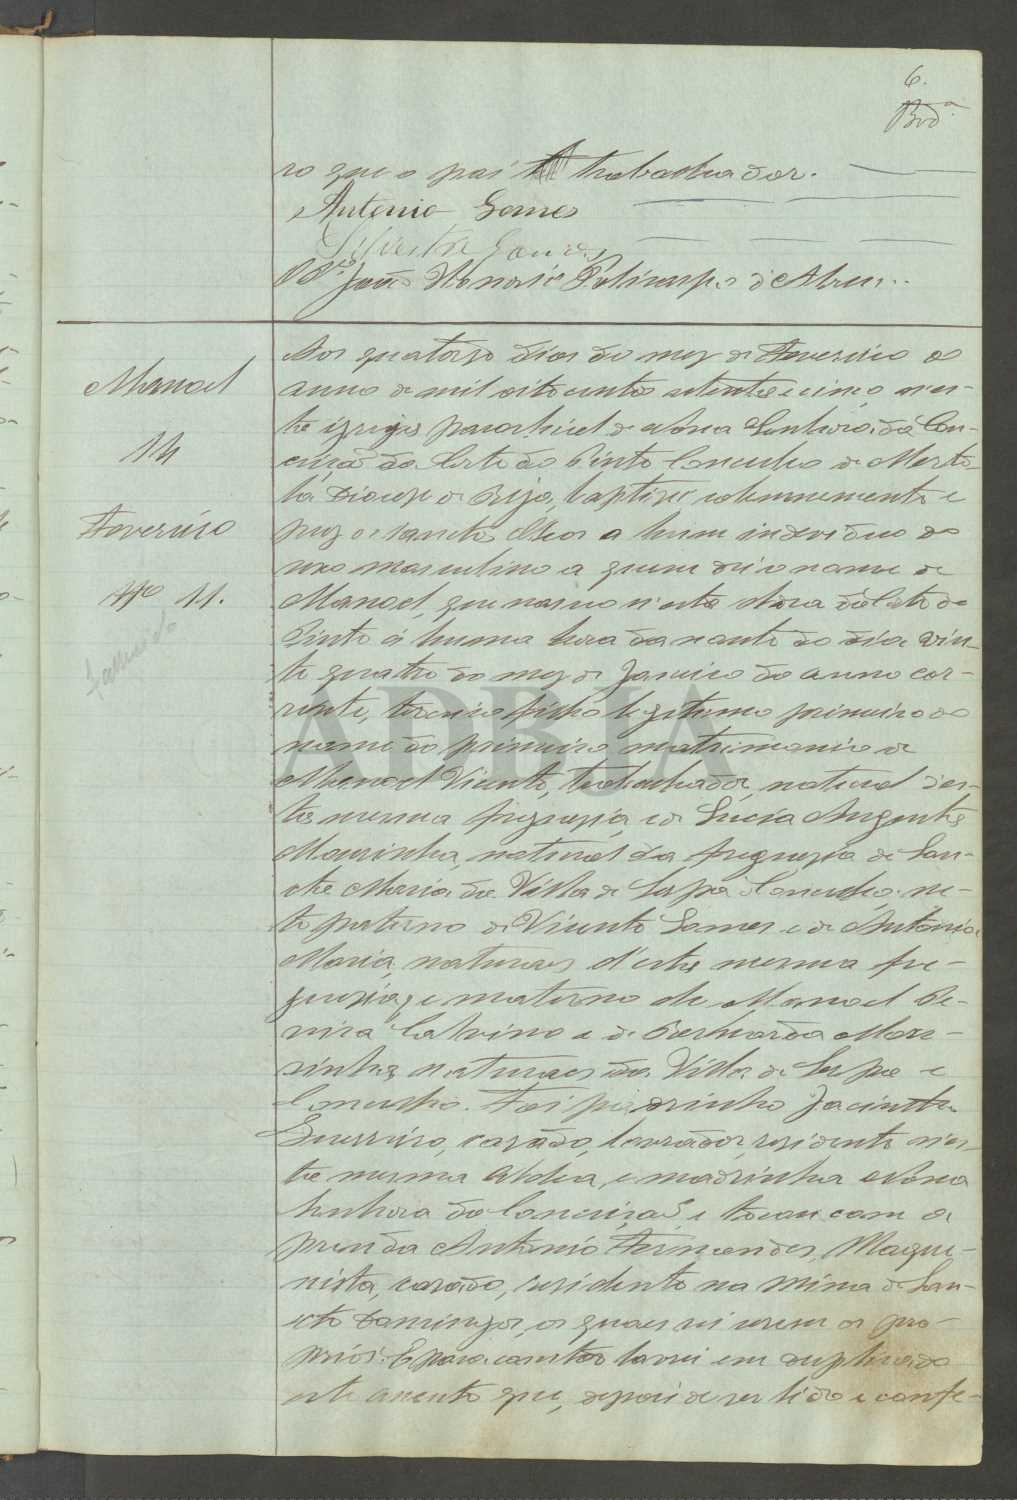 6.
Bvdª
ro que o pai trabalhador.
Antonio Gomes
Silvestre Gomes
João Polycarpo d'Abreu.
Manoel
14
Fevereiro
Nº 11.
Aos quatorze dias do mez de Fevereiro do
anno de mil oito centos setenta e cinco, n'es-
ta igreja parochial de Nossa Senhora da Con-
ceição do Corte do Pinto Concelho de Merto-
la Diocese de Beja, baptizei solemnemente e
puz os sanctos oleos a hum individuo do
sexo masculino a quem dei o nome de
Manoel, que nasceu n'esta Aldea da Corte do
Pinto á huma hora da noute do dia vin-
te quatro do mez de Janeiro do anno cor-
rente, terceiro filho legitimo primeiro do
nome do primeiro matrimonio de
Manoel Vicente, trabalhador, natural d'es-
ta mesma freguezia, e de Lucia
Mourinha, natural da freguezia de San-
cta Maria da Villa de Serpa Concelho, ne-
to paterno de Vicente Gomes e de Antonia
Maria, naturaes d'esta mesma fre-
guezia, e materno de Manoel Pe-
reira e de Bernarda Mou-
rinha, naturaes da Villa de Serpa e
Concelho. Foi padrinho Jacintho
Guerreiro, casado, lavrador, residente n'es-
ta mesma Aldea, e madrinha Nossa
Senhora da Conceição, e tocou com a
prenda Antonio Fernandes, Maqui-
nista, casado, residente na Mina de San-
cto Domingos, os quaes sei serem os pro-
prios. E para constar lavrei em duplicado
este assento que, depois de ser lido e confe-
ADBJA